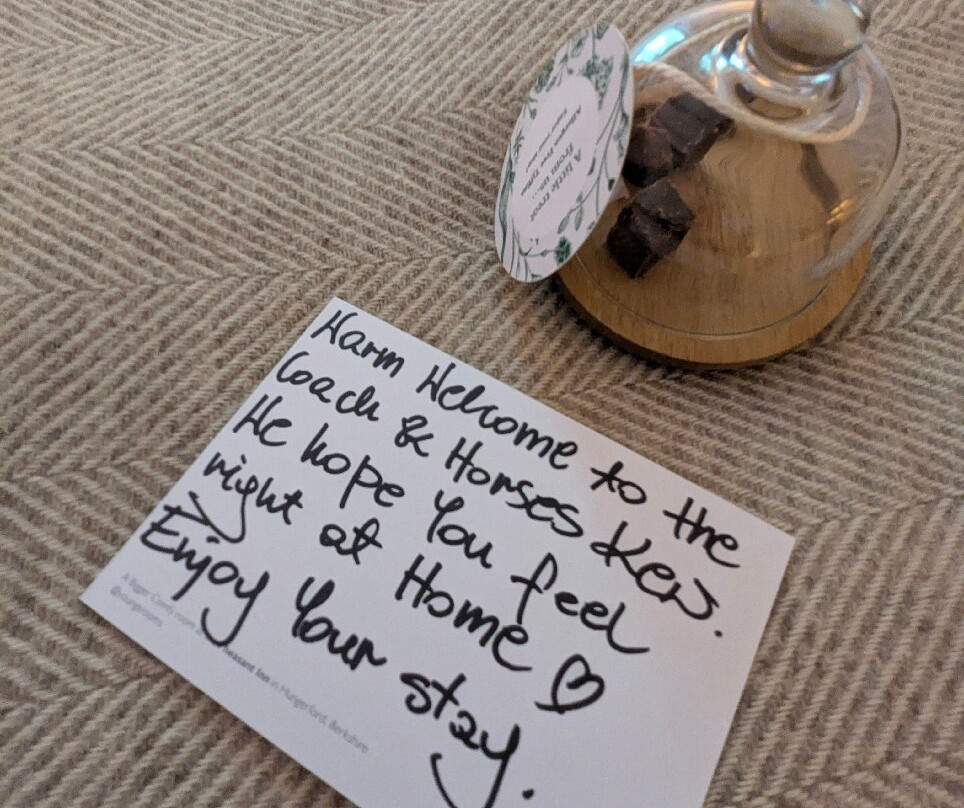 A little treat
from us...
Warm Welcome to the
Coach & Horses Kew.
We hope You feel
right at Home ♡
Enjoy Your stay.
A Bigger Comfy room at Pheasant Inn in Hungerford, Berkshire